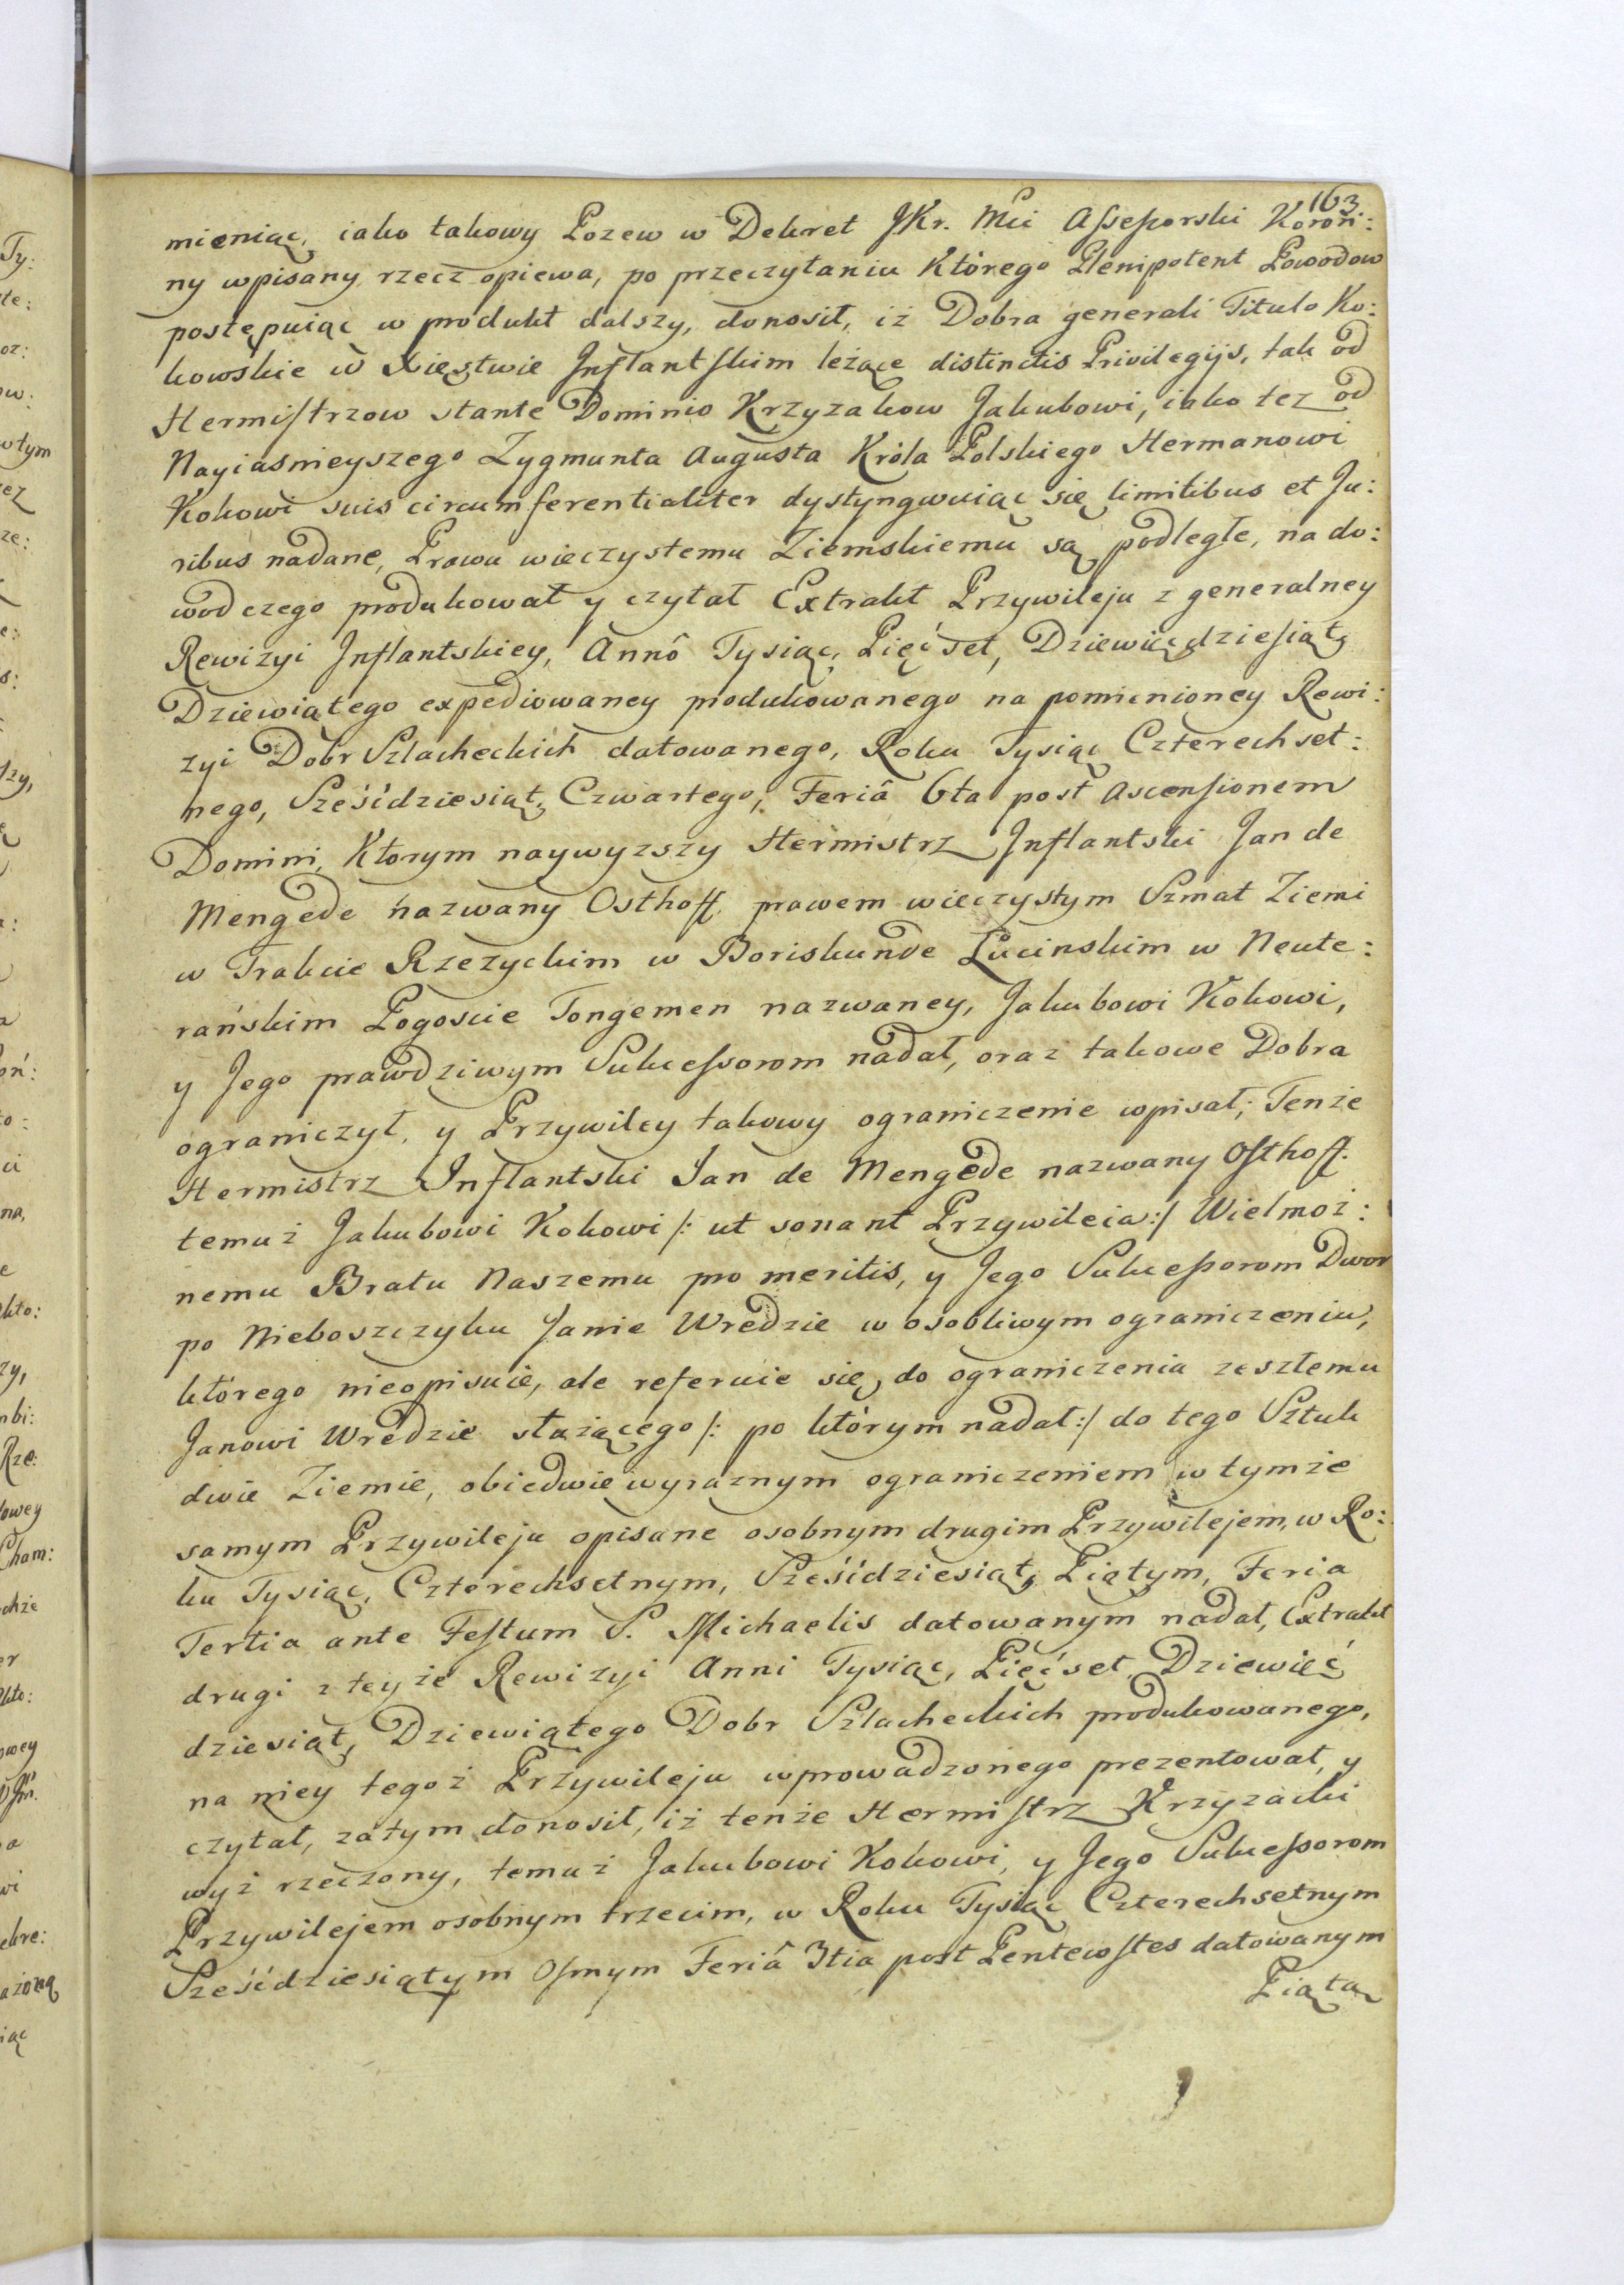 163
mieniąc, iako takowy Pozew w Dekret JKr. Mci Assessorski Koron:
ny wpisany rzecz opiewa, po przeczytaniu Którego Plenipotent Powodow
postępuiąc w produkt dalszy, donosił, iż Dobra generali Titulo Ko:
kowskie w Xięstwie Inflantskim leżące distinctis Privilegijs, tak od
Hermistrzow stante Dominio Krzyzakow Jakubowi, iako tez od
Nayiasnieyszego Zygmunta Augusta Króla Polskiego Hermanowi
Kokowi suis circumferentialiter dystyngwuiąc się limitibus et Ju:
ribus nadane, Prawu wieczystemu Ziemskiemu są podległe, na do:
wod czego produkował y czytał Extrakt Przywileju z generalney
Rewizyi Inflantskiey, Annô Tysiąc, Pięćset, Dziewięćdziesiąt,
Dziewiątego expediowaney produkowanego na pomienioney Rewi:
zyi Dobr Szlacheckich datowanego, Roku Tysiąc Czterechset:
nego, Sześćdziesiąt, Czwartego, Feriâ 6ta post Ascensionem
Domini, Ktorym naywyzszy Hermistrz Inflantski Jan de
Mengede nazwany Osthoff. prawem wieczystym Szmat Ziemi
w Trakcie Rzezyckim w Boriskunde Lucinskim w Neute:
rańskim Pogoscie Tongemen nazwaney, Jakubowi Kokowi,
y Jego prawdziwym Sukcessorom nadał, oraz takowe Dobra
ograniczył, y Przywiley takowy ograniczenie wpisał; Tenże
Hermistrz Inflantski Jan de Mengede nazwany Osthoff.
temuż Jakubowi Kokowi /: ut sonant Przywileia :/ Wielmoż:
nemu Bratu Naszemu pro meritis, y Jego Sukcessorom Dwor
po Nieboszczyku Janie Wredzie w osobliwym ograniczeniu,
którego nieopisuie, ale referuie się, do ograniczenia zeszłemu
Janowi Wredzie służącego /: po którym nadał :/ do tego Sztuk
dwie Ziemie, obiedwie wyraznym ograniczeniem w tymże
samym Przywileju opisane osobnym drugim Przywilejem, w Ro:
ku Tysiąc, Czterechsetnym, Sześćdziesiąt, Piątym, Feria
Tertia ante Festum S. Michaelis datowanym nadał, Extrakt
drugi z teyże Rewizyi Anni Tysiąc, Pięćset, Dziewięć
dziesiąt, Dziewiątego Dobr Szlacheckich produkowanego,
na niey tegoż Przywileju wprowadzonego prezentował, y
czytał, zatym donosił, iż tenże Hermistrz Krzyzacki
wyż rzeczony, temuż Jakubowi Kokowi, y Jego Sukcessorom
Przywilejem osobnym trzecim, w Roku Tysiąc Czterechsetnym
Sześćdziesiątym Osmym Feriâ 3tia post Pentecostes datowanym
Piątą